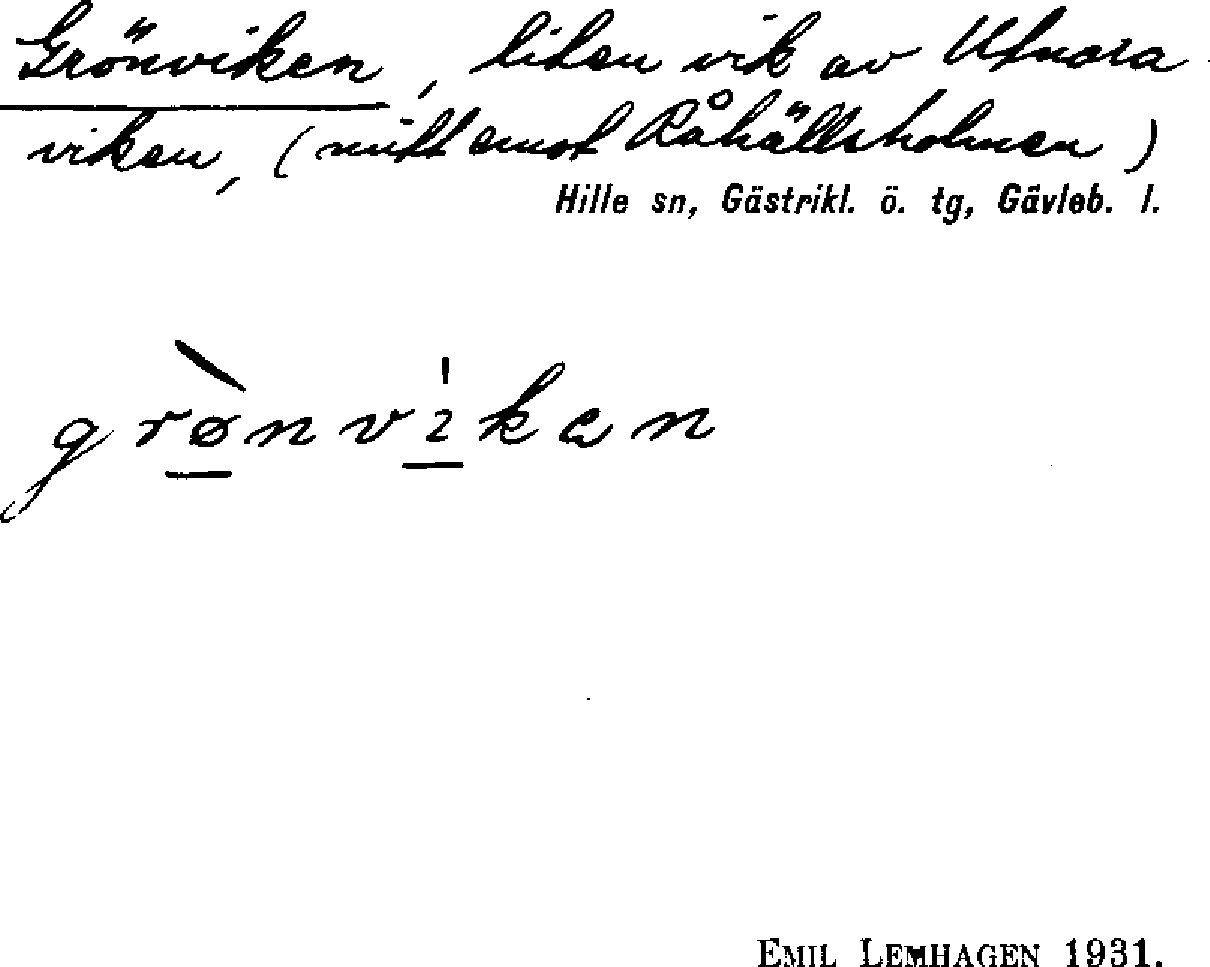 Grönviken, liten vik av Utnora-
viken, (mitt emot Råhällsholmen)
Hille sn, Gästrikl. ö. tg, Gävleb. l.
grønvikən
EMIL LEMHAGEN 1931.